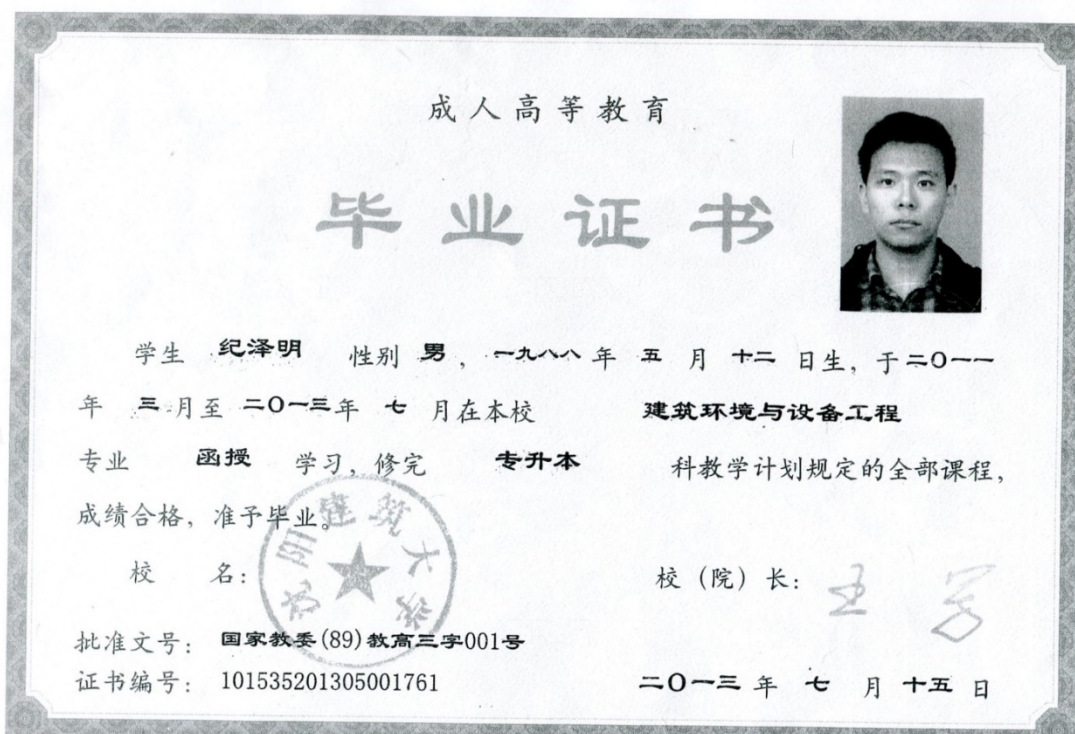 成人高等教育
毕业证书
学生 纪泽明 性别 男，一九八八年 五 月 十二 日生，于二〇一一
年 三 月至 二〇一三年 七 月在本校 建筑环境与设备工程
专业 函授 学习，修完 专升本 科教学计划规定的全部课程，
成绩合格，准予毕业。
沈阳建筑大学
校 名： 校（院）长：
批准文号：国家教委(89)教高三字001号
证书编号：101535201305001761 二〇一三 年 七 月 十五 日